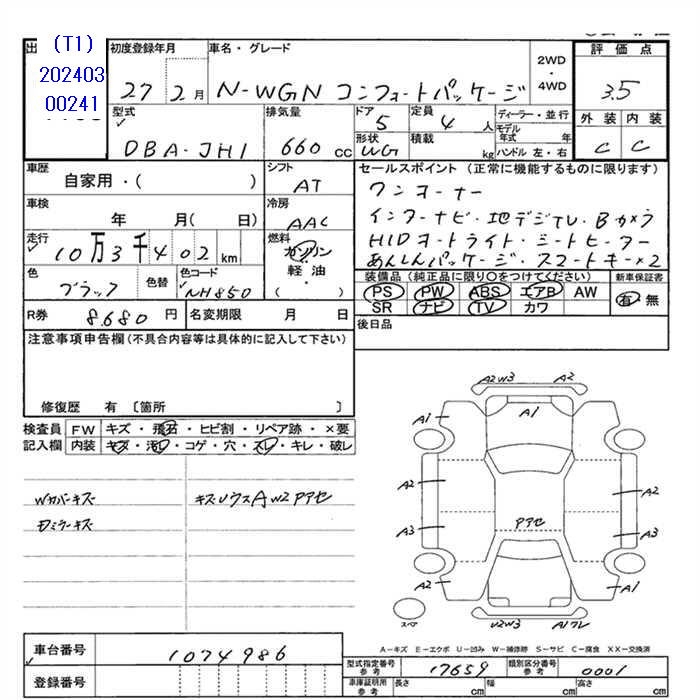 出 (T1)
202403
00241
初度登録年月 車名・グレード
27 2月 N-WGN コンフォートパッケージ
2WD
・
4WD
評価点
3.5
外装 内装
C C
型式 DBA-JH1
排気量 660 CC
ドア 5
定員 4 人
形状 WG
積載 kg
ディーラー・並行
モデル年式 年
ハンドル 左・右
車歴 自家用・( )
シフト AT
車検 年 月( 日)
冷房 AAC
走行 10万3千402 km
燃料 ガソリン
軽油
( )
色 ブラック
色替
色コード NH850
R券 8,680 円
名変期限 月 日
セールスポイント (正常に機能するものに限ります)
ワンオーナー
インターナビ・地デジTV・Bカメラ
HIDオートライト・シートヒーター
あんしんパッケージ・スマートキー×2
装備品(純正品に限り○をつけてください)
PS PW ABS エアB AW
SR ナビ TV カワ
新車保証書
有・無
後日品
注意事項申告欄(不具合内容等は具体的に記入して下さい)
修復歴 有 〔箇所 〕
検査員 FW キズ・飛石・ヒビ割・リペア跡・×要
記入欄 内装 キズ・汚レ・コゲ・穴・スレ・キレ・破レ
Wカバーキズ
キズUウスAW2Pアセ
Dミラーキズ
A2W3 A2
A1 A1
A2 A2
A3 Pアセ A3
A2 A1
スペア U2W3 A1ワレ
A−キズ E−エクボ U−凹み W−補修跡 S−サビ C−腐食 XX−交換済
車台番号 1074986
登録番号
型式指定番号 参考 17659
類別区分番号 参考 0001
車庫証明用 参考 長さ cm 幅 cm 高さ cm